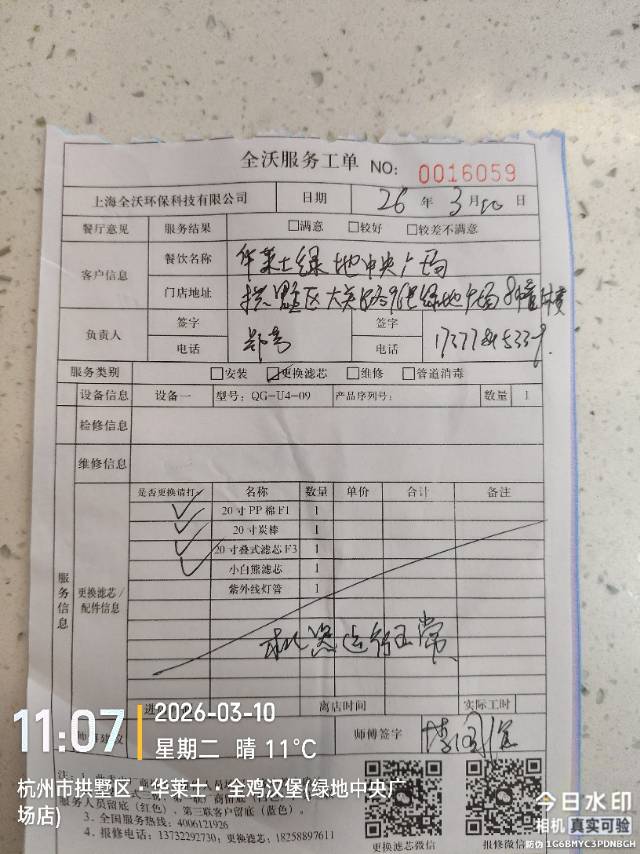 全沃服务工单 NO: 0016059
上海全沃环保科技有限公司 日期 26 年 3 月 10 日
餐厅意见 服务结果 □满意 □较好 □较差不满意
客户信息 餐饮名称 华莱士绿地中央广场
门店地址 拱墅区大关路 绿地中
负责人 签字 签字
电话 电话
服务类别 □安装 □更换滤芯 □维修 □管道消毒
设备信息 设备一 型号: QG-U4-09 产品序列号: 数量 1
检修信息
维修信息
是否更换请打✓ 名称 数量 单价 合计 备注
✓ 20寸PP棉F1 1
✓ 20寸炭棒 1
✓ 20寸叠式滤芯F3 1
✓ 小白熊滤芯 1
紫外线灯管 1
服务信息
更换滤芯/配件信息
机器运行正常
离店时间 实际工时
师傅签字
服务人员留底（红色）、第三联客户留底（蓝色）。
3. 全国服务热线: 4006121926
4. 报修电话: 13732292730; 更换滤芯: 18258897611
更换滤芯微信 报修微信
11:07
2026-03-10
星期二 晴 11°C
杭州市拱墅区·华莱士·全鸡汉堡(绿地中央广
场店)
今日水印
相机 真实可验
防伪 1G6BMYC3PDNBGH